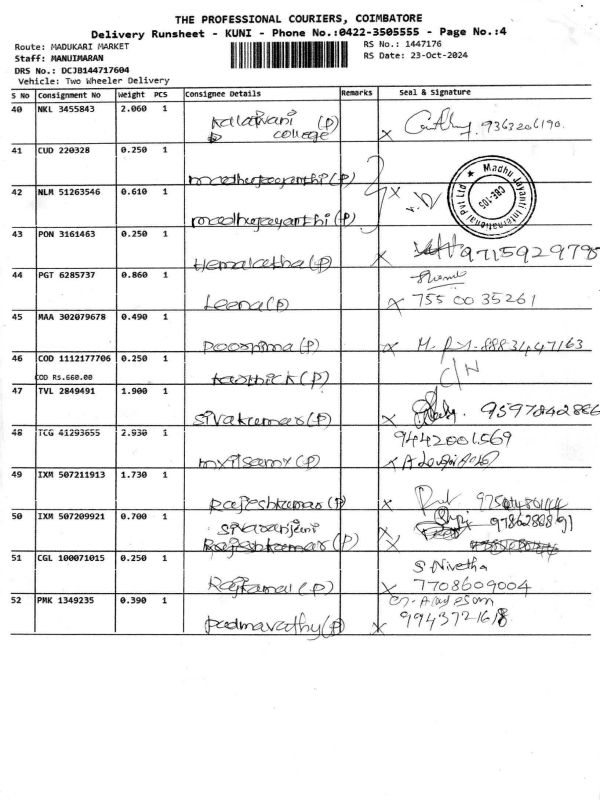 THE PROFESSIONAL COURIERS, COIMBATORE
Delivery Runsheet - KUNI - Phone No.:0422-3505555 - Page No.:4
Route: MADUKARI MARKET
RS No.: 1447176
Staff: MANUIMARAN
RS Date: 23-Oct-2024
DRS No.: DCJB144717604
Vehicle: Two Wheeler Delivery
S No Consignment No Weight PCS Consignee Details Remarks Seal & Signature
40 NKL 3455843 2.060 1
Kalaivani (P)
college
X 9363206190.
41 CUD 220328 0.250 1
madhujayanthi (P)
Madhu Jayanti International Pvt Ltd ★
CBE-105
42 NLM 51263546 0.610 1
madhujayanthi (P)
X
43 PON 3161463 0.250 1
Hemalatha (P) X 9715929798
44 PGT 6285737 0.860 1
Leena (P) X 755 00 35261
45 MAA 302079678 0.490 1
Poornima (P) X 8883447163
46 COD 1112177706 0.250 1
COD Rs.660.00
Karthick (P) C/N
47 TVL 2849491 1.900 1
Sivakumar (P) X 9597842886
48 TCG 41293655 2.930 1
9442001569
mylsamy (P) X
49 IXM 507211913 1.730 1
Rajeshkumar (P) X
50 IXM 507209921 0.700 1
Sivaranjani
Rajeshkumar (P) X
51 CGL 100071015 0.250 1
S Nivetha
Rajkamal (P) X 7708609004
52 PMK 1349235 0.390 1
Padmavathy (P) X 9943721618